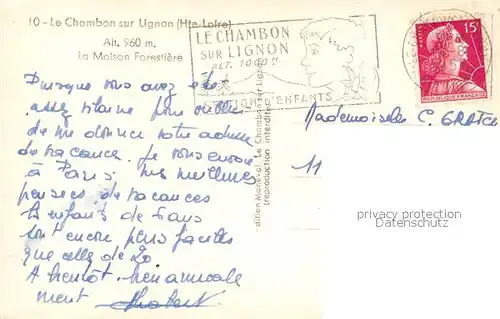 10 - Le Chambon sur Lignon (Hte-Loire)
Alt. 960 m.
La Maison Forestière
LE CHAMBON
SUR LIGNON
ALT. 1000 m
ENFANTS
15F
REPUBLIQUE FRANÇAISE
Puisque vous avez été
assez pour oublier
de me donner votre adresse
de vacances je vous envoie
à Paris mes meilleures
pensées de vacances
Les enfants de 6 ans
sont encore plus faciles
que celle de 20
A bientôt bien amicale
ment
Mademoiselle C.
11
Le Chambon sur Lignon
(reproduction interdite)
privacy protection
Datenschutz